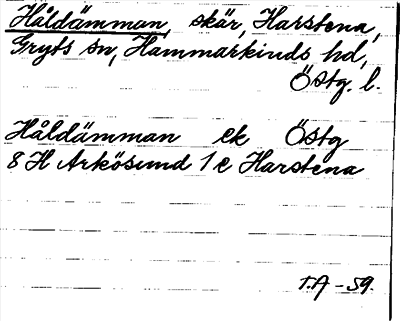 Håldämman, skär, Harstena,
Gryts sn, Hammarkinds hd,
Östg. l.
Håldämman ek Östg
8 H Arkösund 1 e Harstena
T.A - 59.